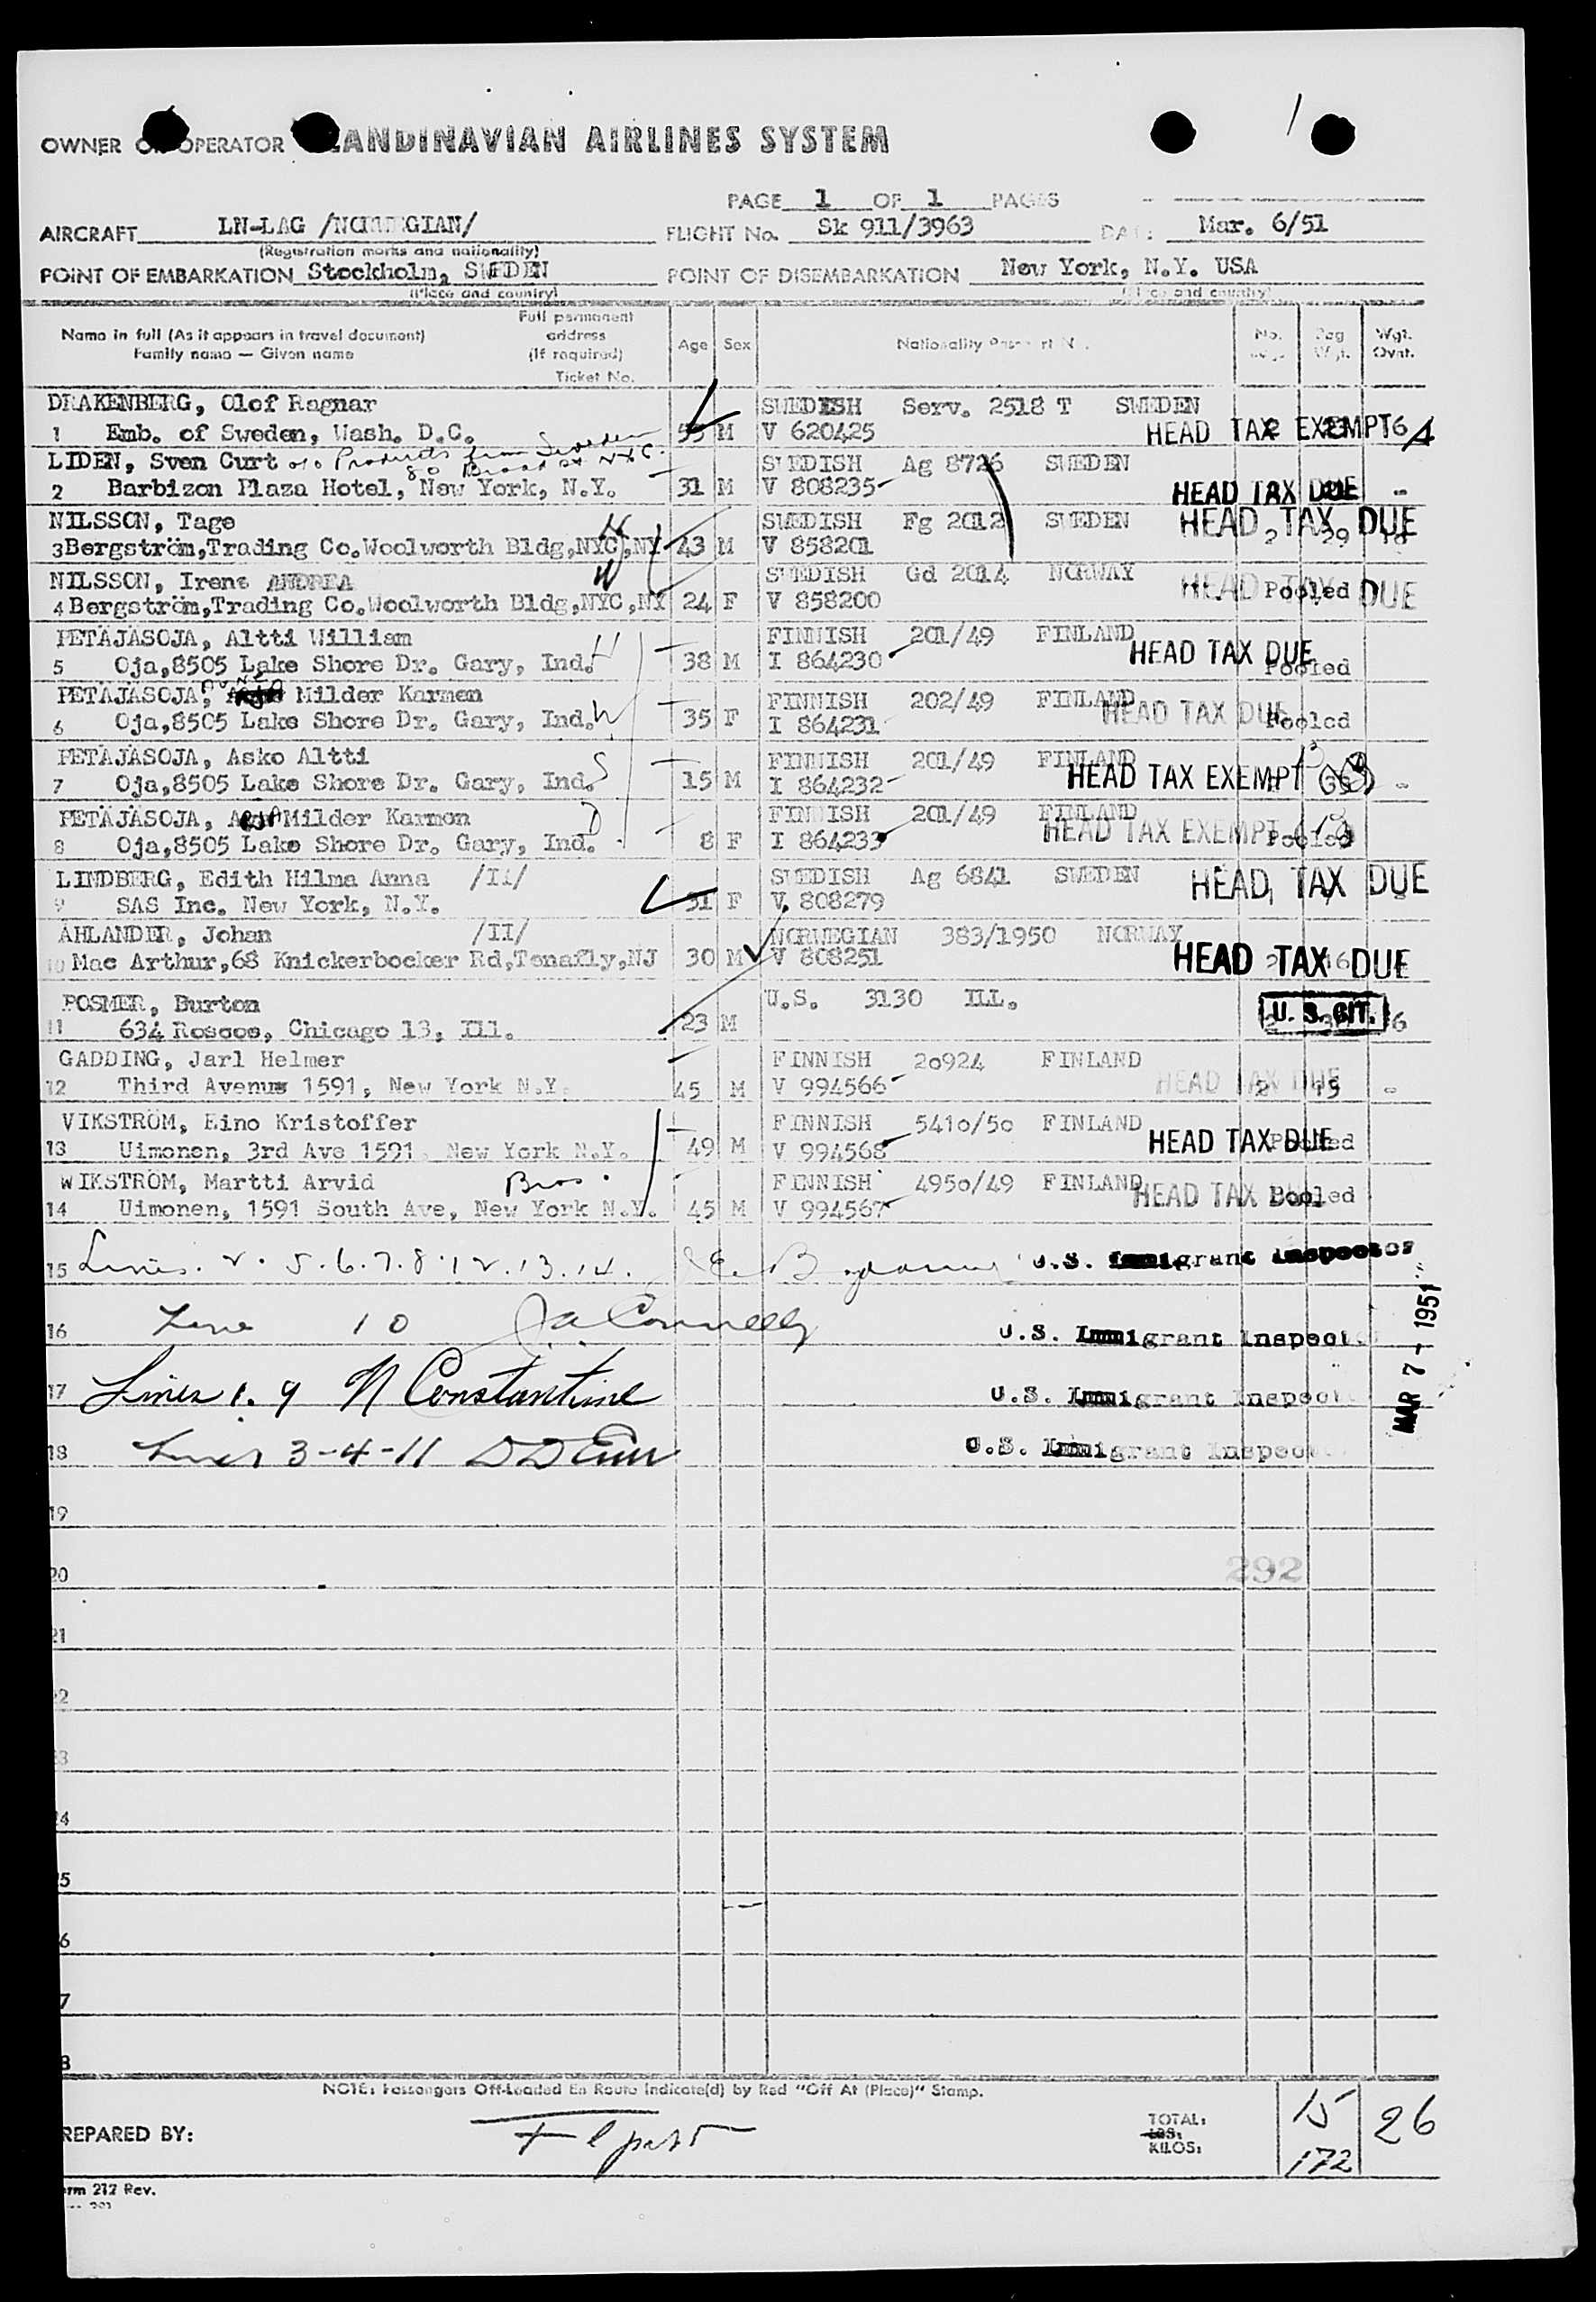 OWNER OR OPERATOR SCANDINAVIAN AIRLINES SYSTEM
PAGE 1 OF 1 PAGES
AIRCRAFT LN-LAG /NORWEGIAN/ FLIGHT No. Sk 911/3963 DATE Mar. 6/51
(Registration marks and nationality)
POINT OF EMBARKATION Stockholm, SWEDEN POINT OF DISEMBARKATION New York, N.Y. USA
(Place and country) (Place and country)
Name in full (As it appears in travel document) Family name — Given name Full permanent address (If required) Ticket No. Age Sex Nationality Passport No. No. Bag Wgt. Wgt. Ovnt.
DRAKENBERG, Olof Ragnar SWEDISH Serv. 2518 T SWEDEN
1 Emb. of Sweden, Wash. D.C. 55 M V 620425 HEAD TAX EXEMPT 6 A
LIDEN, Sven Curt c/o Products from Sweden SWEDISH Ag 8726 SWEDEN
80 Broad St NYC.
2 Barbizon Plaza Hotel, New York, N.Y. 31 M V 808235 HEAD TAX DUE -
NILSSON, Tage H SWEDISH Fg 2012 SWEDEN HEAD TAX DUE
3 Bergström,Trading Co.Woolworth Bldg,NYC,NY 43 M V 858201 2 29 10
NILSSON, Irene ANDREA W SWEDISH Gd 2014 NORWAY HEAD TAX DUE
4 Bergström,Trading Co.Woolworth Bldg,NYC,NY 24 F V 858200 Pooled
PETÄJÄSOJA, Altti William FINNISH 201/49 FINLAND HEAD TAX DUE
5 Oja,8505 Lake Shore Dr. Gary, Ind. H 38 M I 864230 Pooled
PETÄJÄSOJA, Milder Karmen FINNISH 202/49 FINLAND HEAD TAX DUE
6 Oja,8505 Lake Shore Dr. Gary, Ind. W 35 F I 864231 Pooled
PETÄJÄSOJA, Asko Altti S FINNISH 201/49 FINLAND
7 Oja,8505 Lake Shore Dr. Gary, Ind. 15 M I 864232 HEAD TAX EXEMPT -
PETÄJÄSOJA, Milder Karmen D FINNISH 201/49 FINLAND HEAD TAX EXEMPT
8 Oja,8505 Lake Shore Dr. Gary, Ind. 8 F I 864233 Pooled
LINDBERG, Edith Hilma Anna /II/ SWEDISH Ag 6841 SWEDEN HEAD TAX DUE
9 SAS Inc. New York, N.Y. 31 F V 808279
ÅHLANDER, Johan /II/ NORWEGIAN 383/1950 NORWAY
10 Mac Arthur,68 Knickerbocker Rd,Tenafly,NJ 30 M V 808251 HEAD TAX DUE
POSMER, Burton U.S. 3130 ILL.
11 634 Roscoe, Chicago 13, Ill. 23 M U. S. CIT. 6
GADDING, Jarl Helmer FINNISH 20924 FINLAND
12 Third Avenue 1591, New York N.Y. 45 M V 994566 HEAD TAX DUE 2 15 -
VIKSTRÖM, Eino Kristoffer FINNISH 5410/50 FINLAND
13 Uimonen, 3rd Ave 1591, New York N.Y. 49 M V 994568 HEAD TAX DUE Pooled
WIKSTRÖM, Martti Arvid Bros. FINNISH 4950/49 FINLAND HEAD TAX DUE Pooled
14 Uimonen, 1591 South Ave, New York N.Y. 45 M V 994567
15 Lines. 2. 5.6.7.8.12.13.14. U.S. Immigrant Inspector
16 Line 10 J.A. Connelly U.S. Immigrant Inspector
17 Lines 1. 9 N Constantine U.S. Immigrant Inspector
MAR 7 - 1951
18 Lines 3-4-11 U.S. Immigrant Inspector
19
20 292
21
22
23
24
25
26
27
28
NOTE: Passengers Off-Loaded En Route Indicate(d) by Red "Off At (Place)" Stamp.
PREPARED BY: TOTAL: LBS: KILOS: 15 172 26
Form 212 Rev.